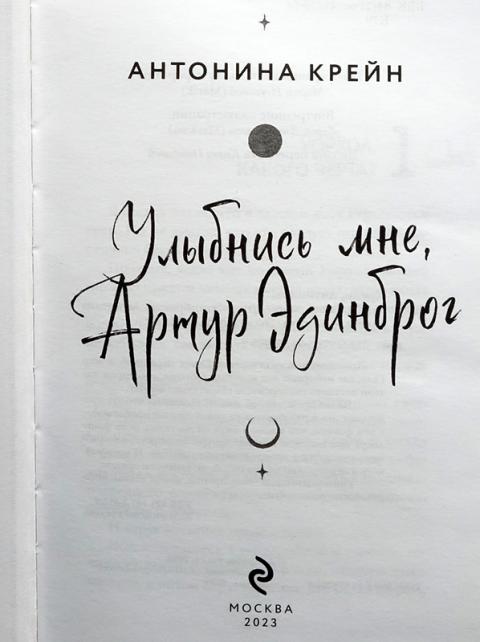 АНТОНИНА КРЕЙН
Улыбнись мне,
Артур Эдинброг
МОСКВА
2023